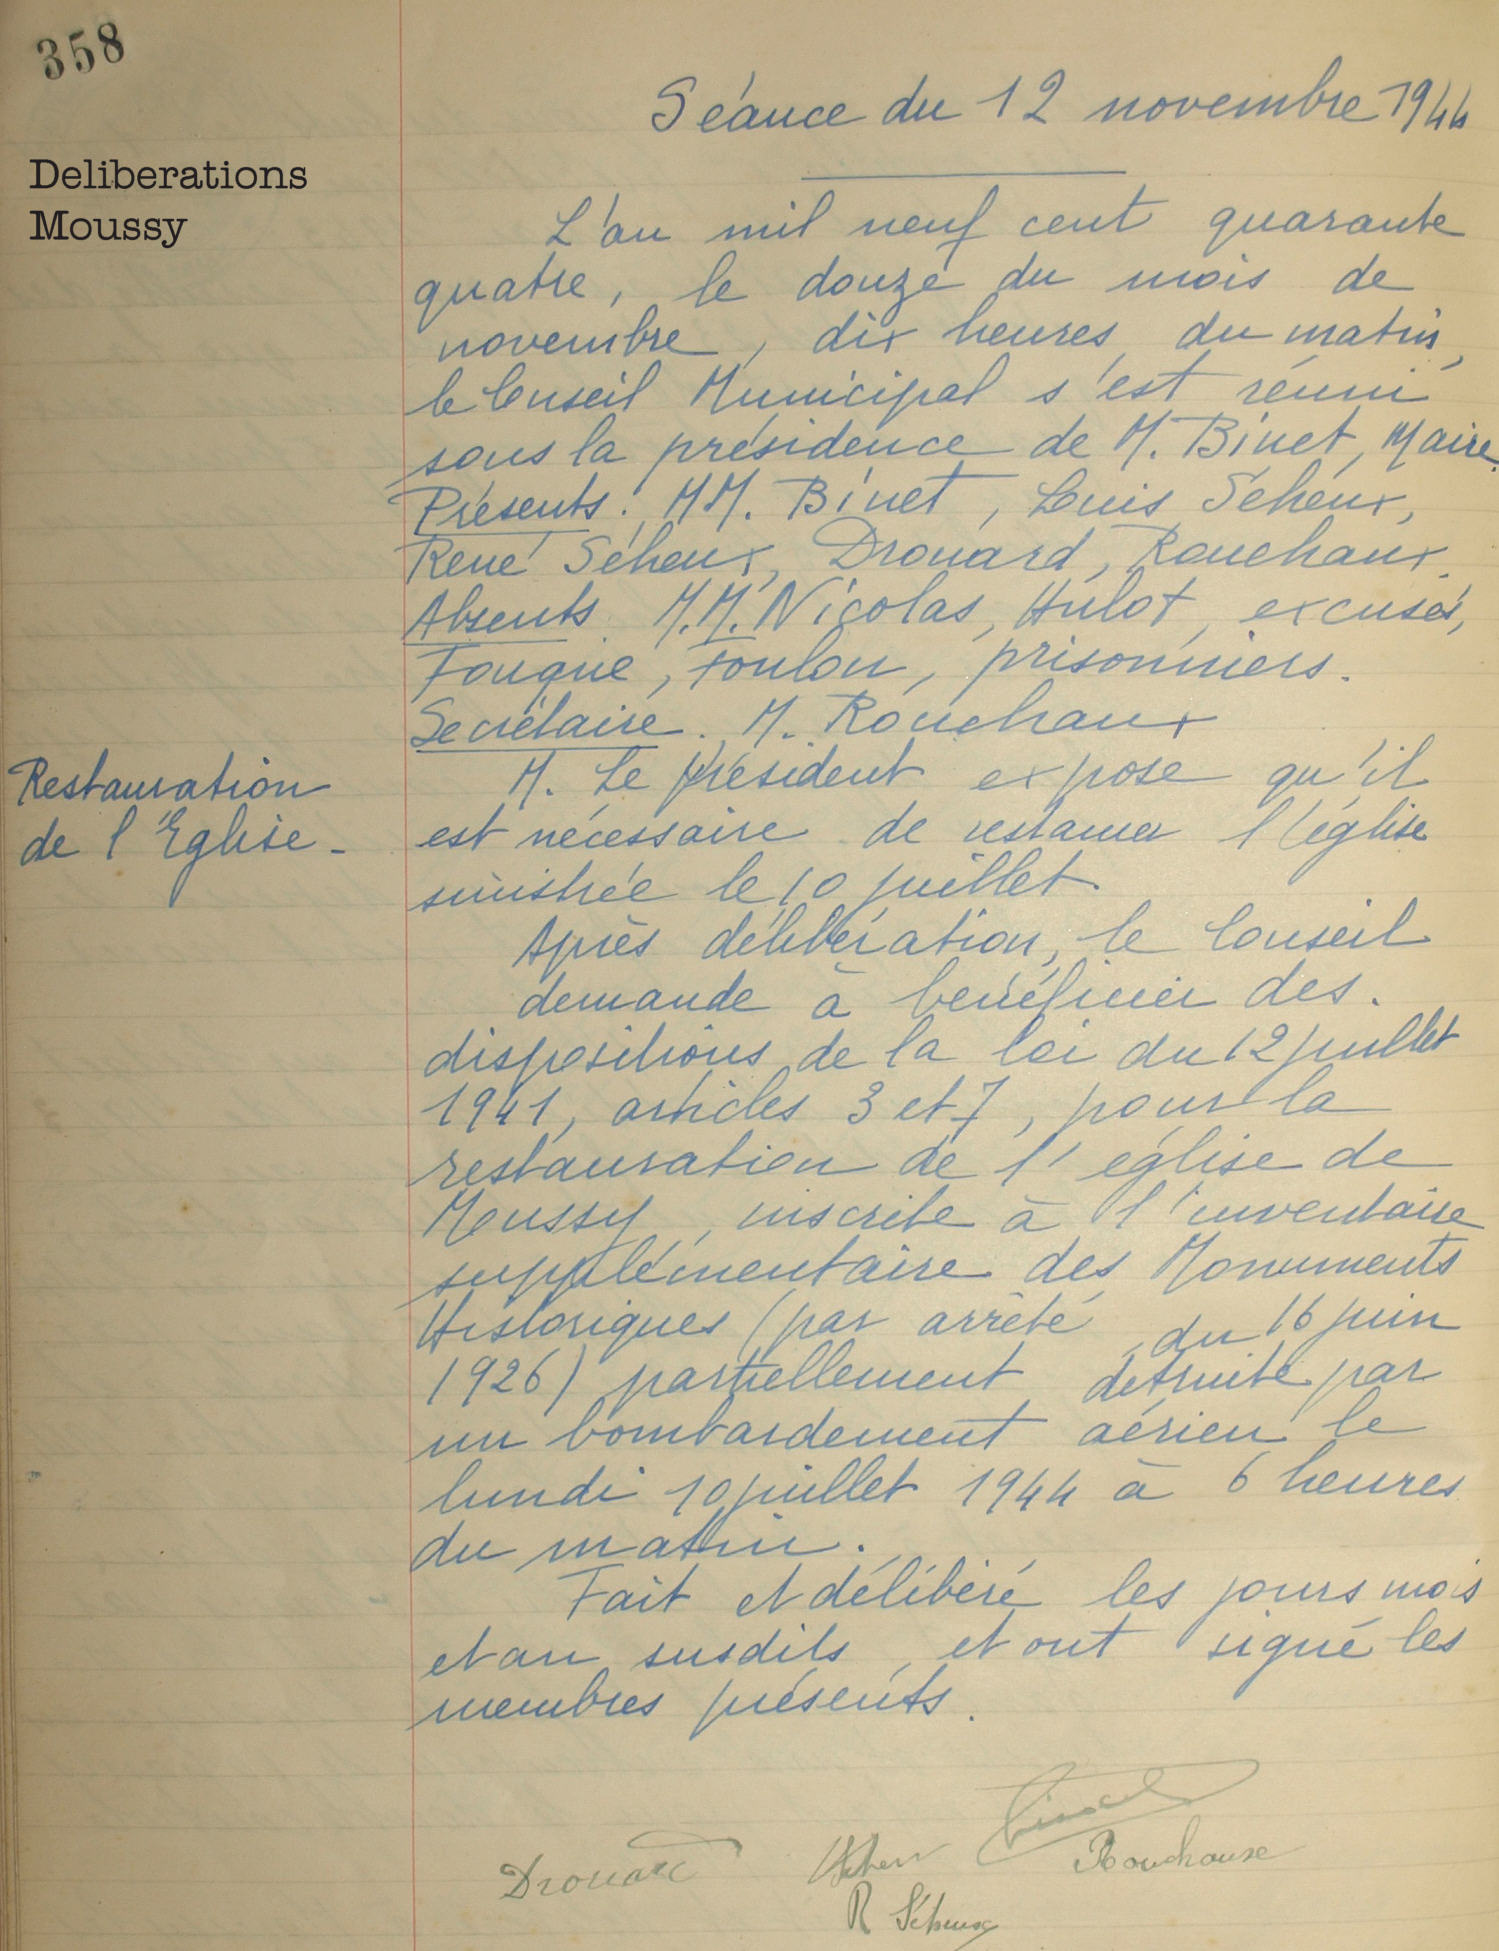 358
Séance du 12 novembre 1944
Deliberations
Moussy
L'an mil neuf cent quarante
quatre, le douze du mois de
novembre, dix heures du matin,
le Conseil Municipal s'est réuni
sous la présidence de M. Binet, Maire.
Présents : MM. Binet, Louis Séheux,
René Séheux, Drouard, Rouchaux.
Absents. M.M. Nicolas, Hulot, excusés,
Fouque, Foulon, prisonniers.
Secrétaire. M. Rouchaux
Restauration
de l'Eglise -
M. Le président expose qu'il
est nécessaire de restaurer l'église
sinistrée le 10 juillet.
Après délibération, le Conseil
demande à bénéficier des.
dispositions de la loi du 12 juillet
1941, articles 3 et 7, pour la
restauration de l'église de
Moussy, inscrite à l'inventaire
supplémentaire des Monuments
Historiques (par arrêté du 16 juin
1926) partiellement détruite par
un bombardement aérien le
lundi 10 juillet 1944 à 6 heures
du matin.
Fait et délibéré les jours mois
et an susdits, et ont signé les
membres présents.
Binet
Drouard
Rouchaux
R Séheux